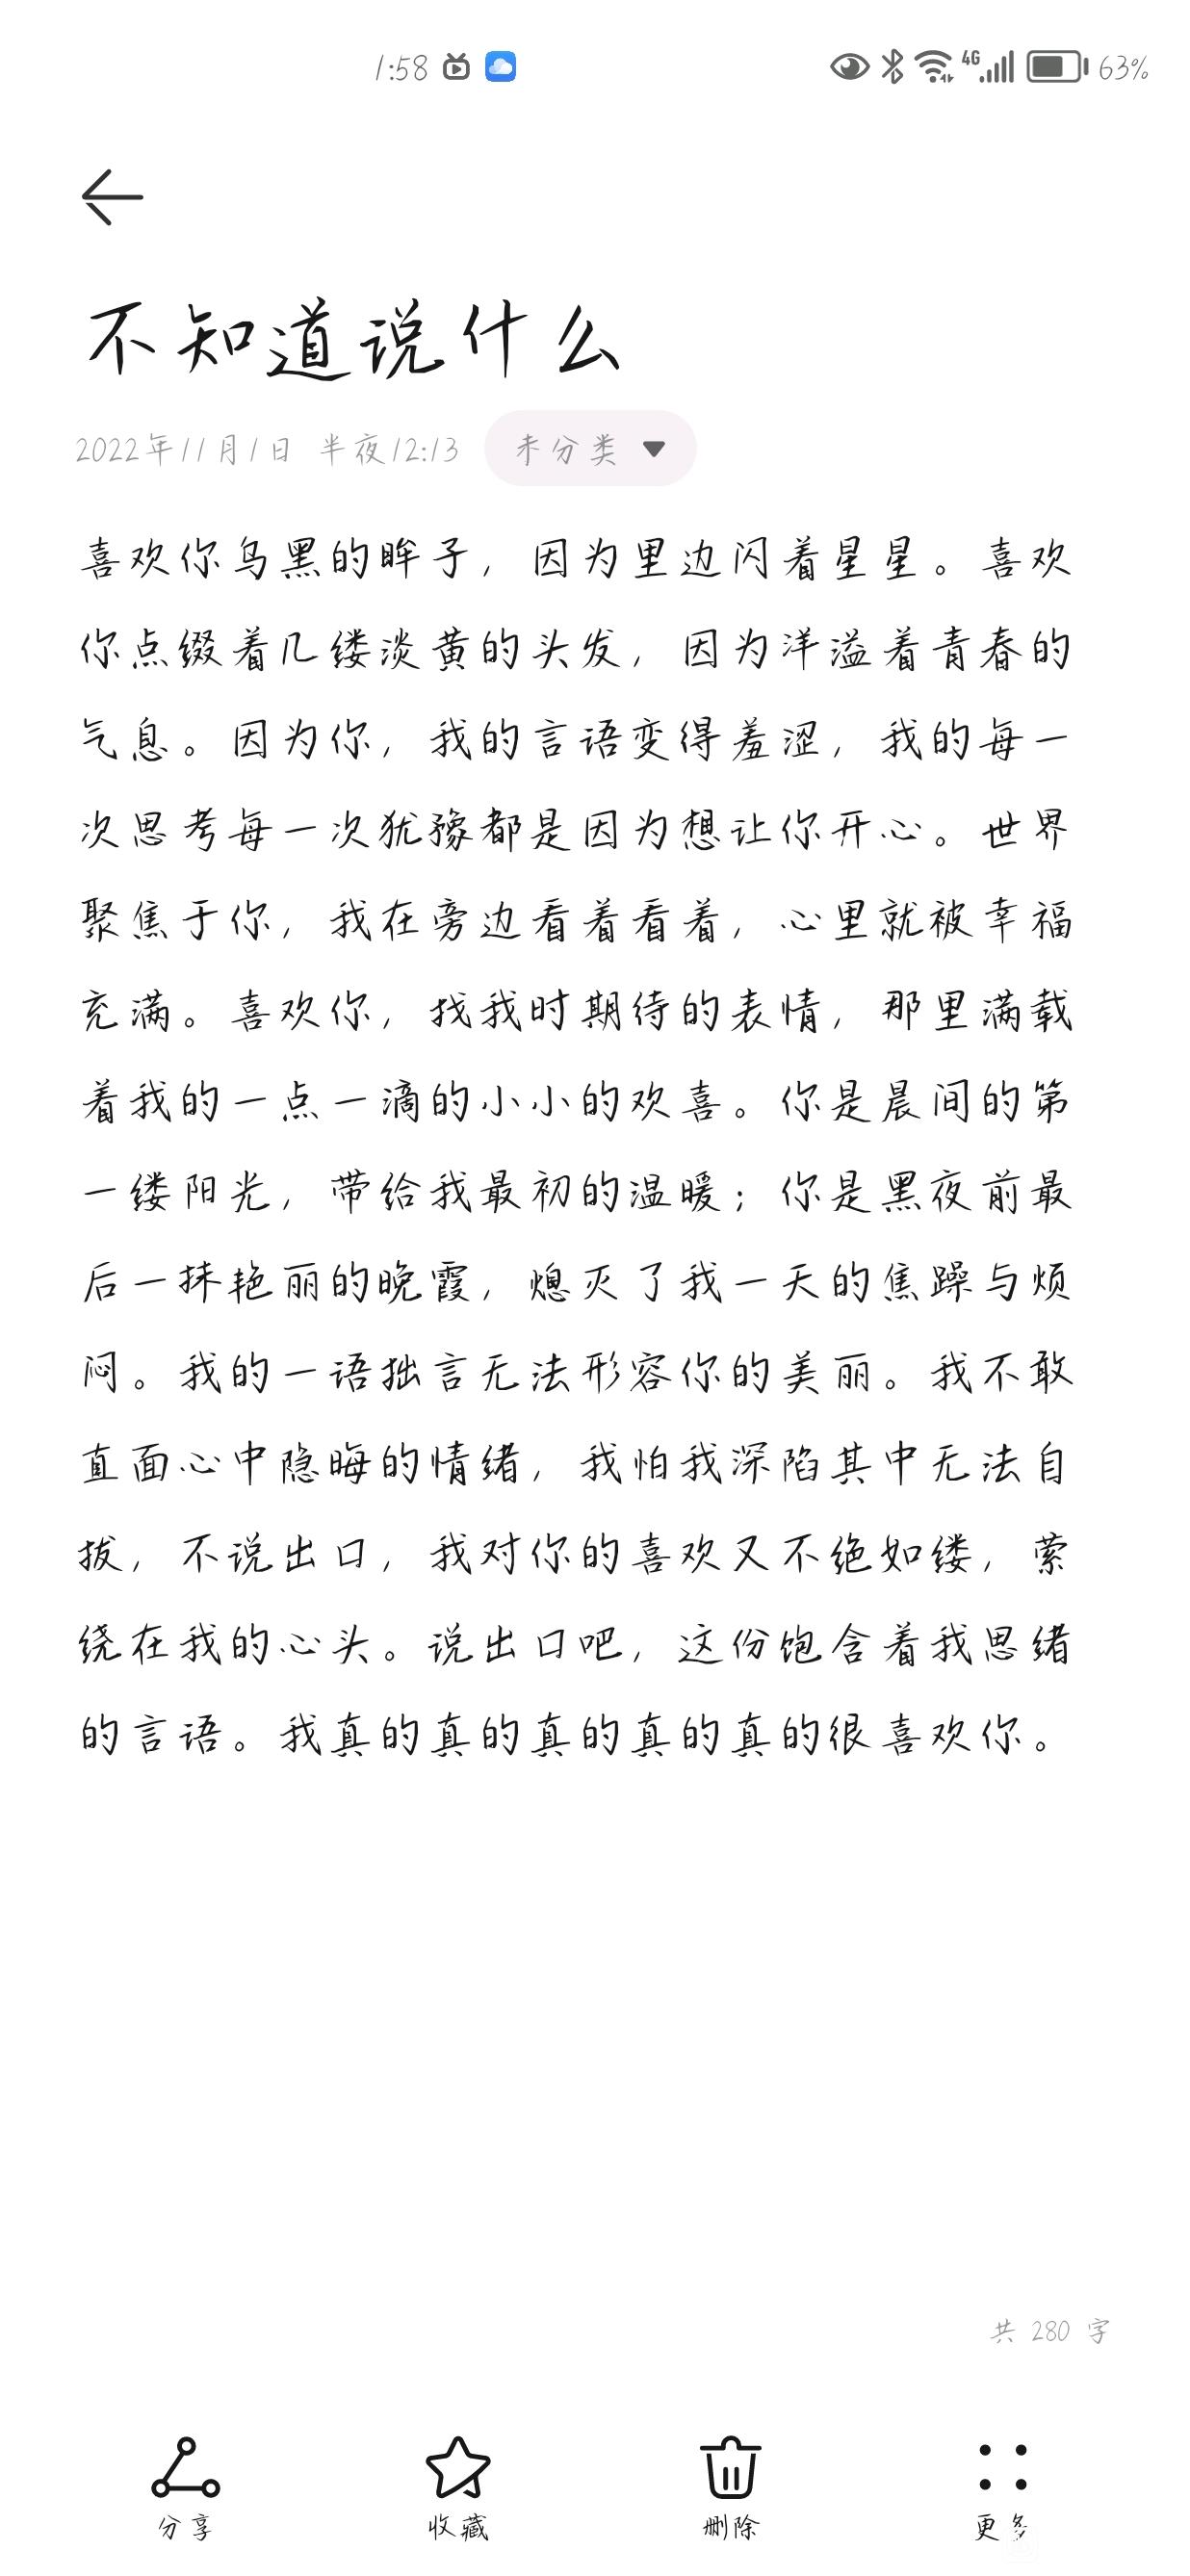 1:58
4G
63%
不知道说什么
2022年11月1日 半夜12:13
未分类
喜欢你乌黑的眸子，因为里边闪着星星。喜欢
你点缀着几缕淡黄的头发，因为洋溢着青春的
气息。因为你，我的言语变得羞涩，我的每一
次思考每一次犹豫都是因为想让你开心。世界
聚焦于你，我在旁边看着看着，心里就被幸福
充满。喜欢你，找我时期待的表情，那里满载
着我的一点一滴的小小的欢喜。你是晨间的第
一缕阳光，带给我最初的温暖；你是黑夜前最
后一抹艳丽的晚霞，熄灭了我一天的焦躁与烦
闷。我的一语拙言无法形容你的美丽。我不敢
直面心中隐晦的情绪，我怕我深陷其中无法自
拔，不说出口，我对你的喜欢又不绝如缕，萦
绕在我的心头。说出口吧，这份饱含着我思绪
的言语。我真的真的真的真的真的很喜欢你。
共 280 字
分享
收藏
删除
更多